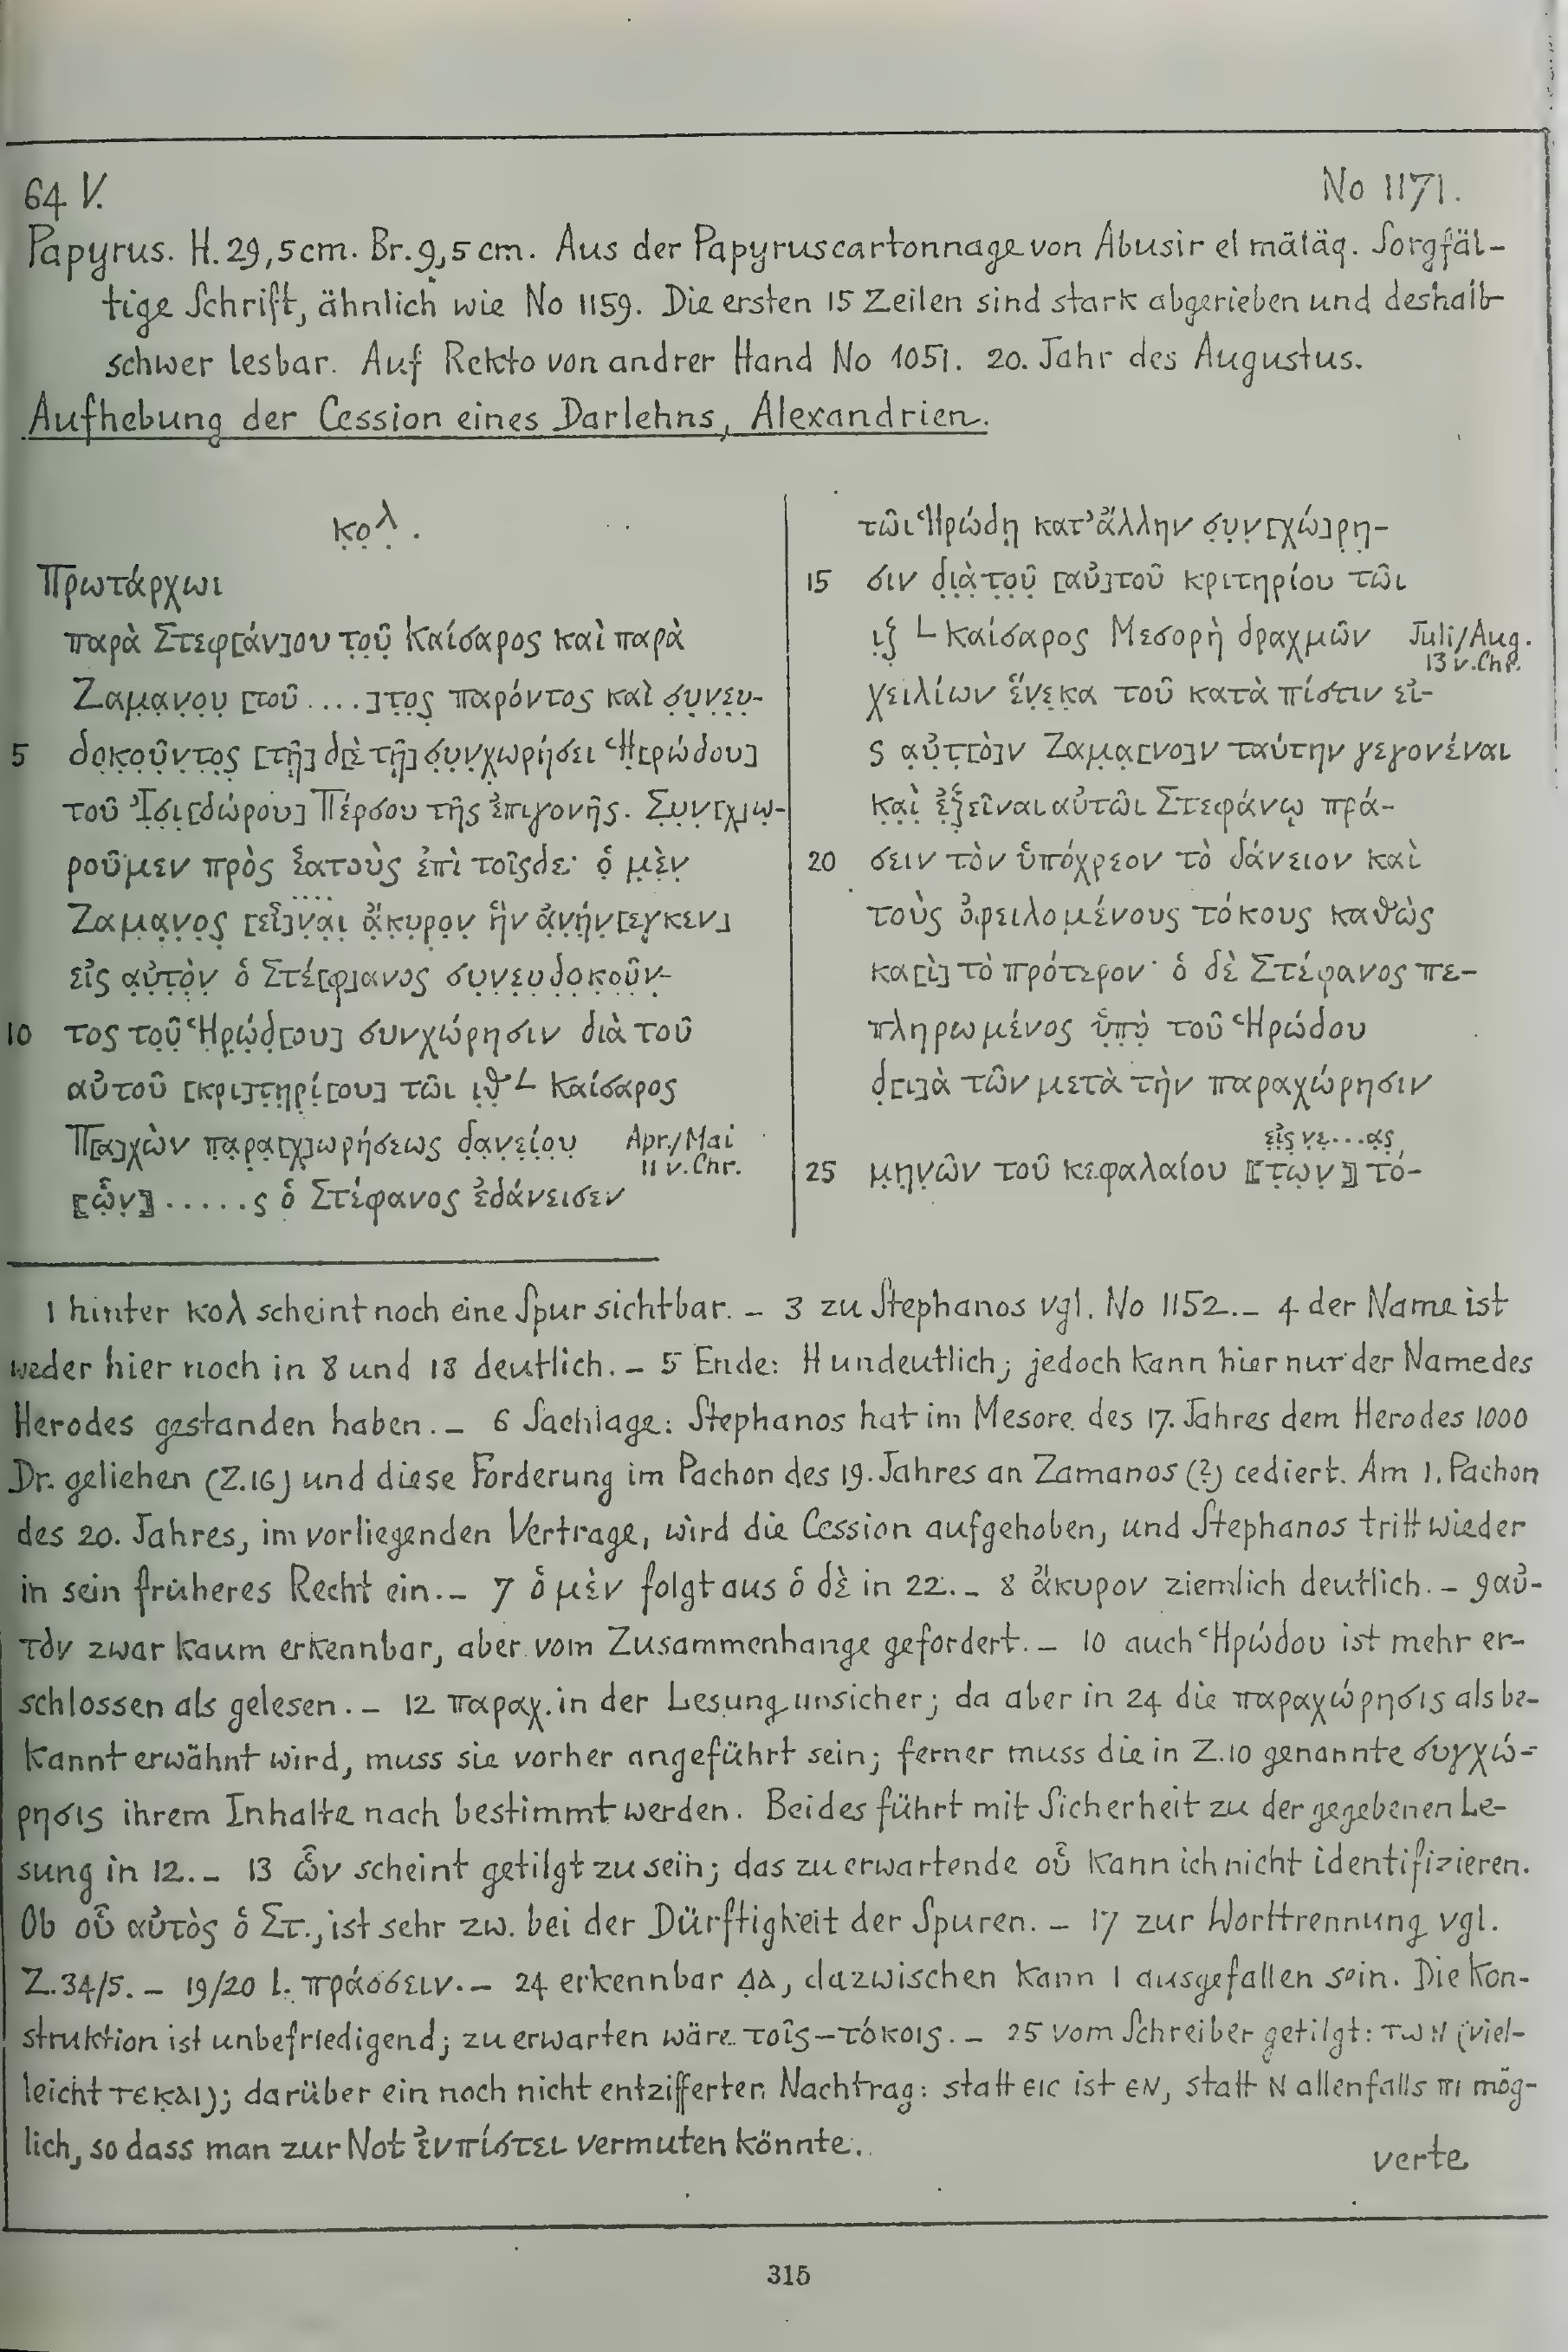 64 V.
No 1171.
Papyrus. H. 29,5 cm. Br. 9,5 cm. Aus der Papyruscartonnage von Abusir el mäläq. Sorgfäl-
tige Schrift, ähnlich wie No 1159. Die ersten 15 Zeilen sind stark abgerieben und deshalb
schwer lesbar. Auf Rekto von andrer Hand No 1051. 20. Jahr des Augustus.
Aufhebung der Cession eines Darlehns, Alexandrien.
κ̣ο̣λ̣ .
Πρωτάρχωι
παρὰ Στεφ[άν]ου τ̣ο̣ῦ̣ Καίσαρος καὶ παρὰ
Ζαμ̣α̣ν̣ο̣υ̣ [τοῦ ....]τ̣ο̣ς παρόντος καὶ σ̣υ̣ν̣ε̣υ̣-
5 δ̣ο̣κ̣ο̣ῦ̣ν̣τ̣ο̣ς̣ [τῇ] δ[ὲ τῇ] σ̣υ̣ν̣χωρήσει Ἡ̣[ρώδου]
τοῦ Ἰ̣σ̣ι̣[δώρου] Πέρσου τῆς ἐπιγονῆς. Σ̣υ̣ν̣[χ]ω̣-
ροῦμεν πρὸς ἑατοὺς ἐπὶ τοῖςδε· ὁ̣ μ̣ὲ̣ν̣
Ζαμ̣α̣ν̣ο̣ς̣ [εἶ]ν̣α̣ι̣ ἄ̣κ̣υ̣ρ̣ο̣ν̣ ἣ̣ν̣ ἀ̣ν̣ή̣ν̣[εγκεν]
εἰς α̣ὐ̣τ̣ὸ̣ν̣ ὁ Στέ[φ]ανος σ̣υ̣ν̣ε̣υ̣δ̣ο̣κ̣ο̣ῦ̣ν̣-
10 τος το̣ῦ̣ Ἡ̣ρ̣ώ̣δ̣[ου] συνχώρησιν διὰ τοῦ
αὐτοῦ [κρι]τ̣η̣ρ̣ί̣[ου] τῶι ι̣θ̣ L Καίσαρος
Π[α]χὼν π̣α̣ρ̣α̣[χ]ωρήσεως δ̣α̣ν̣ε̣ί̣ο̣υ̣ Apr./Mai
11 v. Chr.
⟦ὧ̣ν̣⟧ ......ς ὁ Στέφανος ἐδάνεισεν
τῶι Ἡρώδῃ κατ’ ἄλλην σ̣υ̣ν̣[χώ]ρ̣η̣-
15 σιν δ̣ι̣ὰ̣ τ̣ο̣ῦ̣ [αὐ]τοῦ κριτηρίου τῶι
ι̣ζ̣ L Καίσαρος Μεσορὴ δραχμῶν Juli/Aug.
13 v. Chr.
χειλίων ἕ̣ν̣ε̣κ̣α τοῦ κατὰ πίστιν εἰ-
ς α̣ὐ̣τ̣[ὸ]ν Ζαμ̣α̣[νο]ν ταύτην γεγονέναι
κα̣ὶ̣ ἐ̣ξ̣εῖναι αὐτῶι Στεφάνῳ πρά-
20 σειν τὸν ὑπόχρεον τὸ δάνειον καὶ
τοὺς ὀφειλομένους τόκους καθὼς
κα[ὶ] τὸ πρότερον· ὁ δὲ Στέφανος πε-
πληρωμένος ὑ̣π̣ὸ̣ τοῦ Ἡρώδου
δ̣[ι]ὰ τῶν μετὰ τὴν παραχώρησιν
ε̣ἰ̣ς̣ ν̣ε̣...α̣ς̣
25 μ̣η̣ν̣ῶν τοῦ κεφαλαίου ⟦τ̣ω̣ν̣⟧ τό-
1 hinter κολ scheint noch eine Spur sichtbar. – 3 zu Stephanos vgl. No 1152. – 4 der Name ist
weder hier noch in 8 und 18 deutlich. – 5 Ende: H undeutlich; jedoch kann hier nur der Name des
Herodes gestanden haben. – 6 Sachlage: Stephanos hat im Mesore des 17. Jahres dem Herodes 1000
Dr. geliehen (Z. 16) und diese Forderung im Pachon des 19. Jahres an Zamanos (?) cediert. Am 1. Pachon
des 20. Jahres, im vorliegenden Vertrage, wird die Cession aufgehoben, und Stephanos tritt wieder
in sein früheres Recht ein. – 7 ὁ μὲν folgt aus ὁ δὲ in 22. – 8 ἄκυρον ziemlich deutlich. – 9 αὐ-
τὸν zwar kaum erkennbar, aber vom Zusammenhange gefordert. – 10 auch Ἡρώδου ist mehr er-
schlossen als gelesen. – 12 παραχ. in der Lesung unsicher; da aber in 24 die παραχώρησις als be-
kannt erwähnt wird, muss sie vorher angeführt sein; ferner muss die in Z. 10 genannte συγχώ-
ρησις ihrem Inhalte nach bestimmt werden. Beides führt mit Sicherheit zu der gegebenen Le-
sung in 12. – 13 ὧν scheint getilgt zu sein; das zu erwartende οὗ kann ich nicht identifizieren.
Ob οὗ αὐτὸς ὁ Στ., ist sehr zw. bei der Dürftigkeit der Spuren. – 17 zur Worttrennung vgl.
Z. 34/5. – 19/20 l. πράσσειν. – 24 erkennbar ΔΑ, dazwischen kann Ι ausgefallen sein. Die Kon-
struktion ist unbefriedigend; zu erwarten wäre τοῖς–τόκοις. – 25 vom Schreiber getilgt: τωΝ (viel-
leicht τεκαι); darüber ein noch nicht entzifferter Nachtrag: statt ειc ist εΝ, statt Ν allenfalls πι mög-
lich, so dass man zur Not ἐν πίστει vermuten könnte.
verte
315